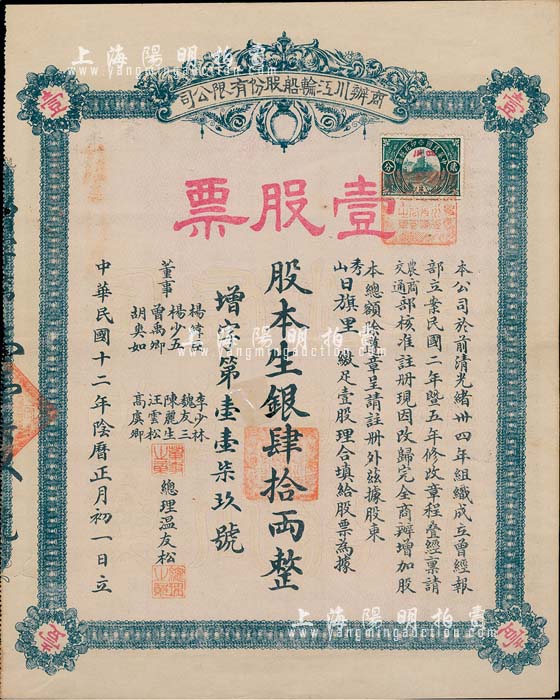 商辦川江輪船股份有限公司
壹股票
本公司於前清光緒卅四年組織成立曾經報
部立案民國二年暨五年修改章程叠經稟請
農商交通部核准註册現因改歸完全商辦增加股
本總額除章呈請註册外茲據股東
秀山日旗里繳足壹股理合填給股票為據
股本生銀肆拾両整
增字第壹壹柒玖號
董事
楊
楊少五
曾禹卿
胡奐如
李少林
魏友三
陳麗生
汪雲松
高虞卿
總理溫友松
中華民國十二年陰曆正月初一日立
壹
壹
壹
壹
上海陽明拍賣
www.yangmingauction.com
上海陽明拍賣
www.yangmingauction.com
上海陽明拍賣
www.yangmingauction.com